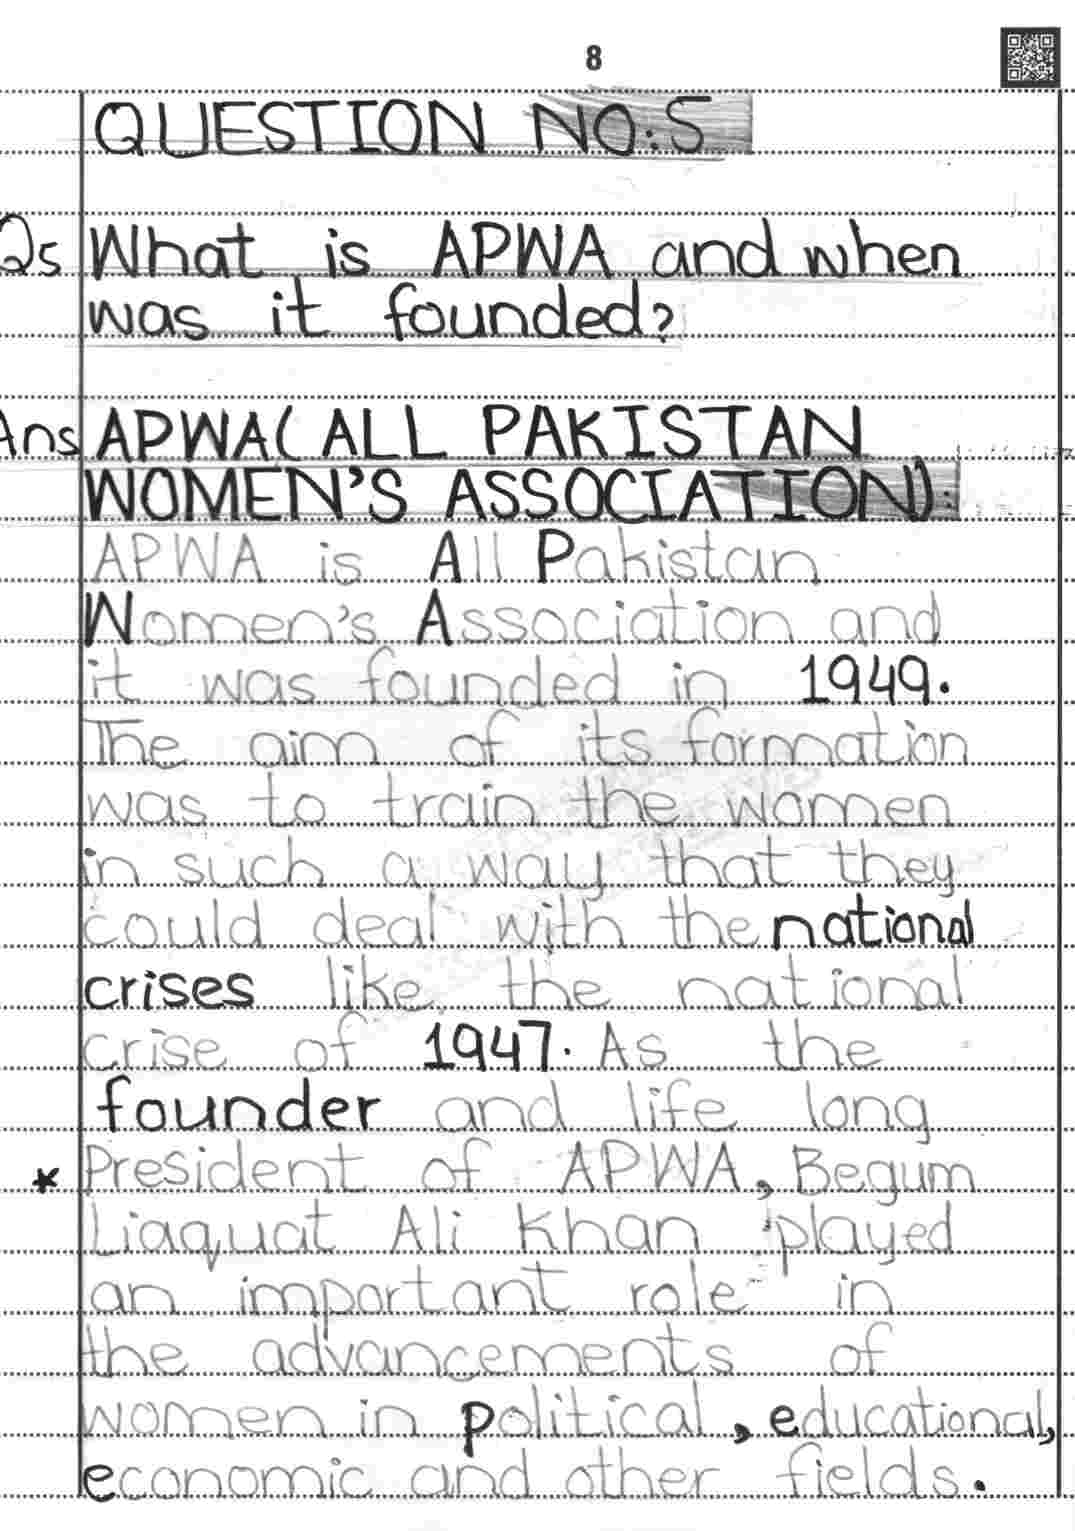 8
QUESTION NO:5
Q5 What is APWA and when
was it founded?
Ans APWA(ALL PAKISTAN
WOMEN'S ASSOCIATION):
APWA is All Pakistan
Women's Association and
it was founded in 1949.
The aim of its formation
was to train the women
in such a way that they
could deal with the national
crises like the national
crise of 1947. As the
founder and life long
* President of APWA, Begum
Liaquat Ali Khan played
an important role in
the advancements of
women in political, educational,
economic and other fields.